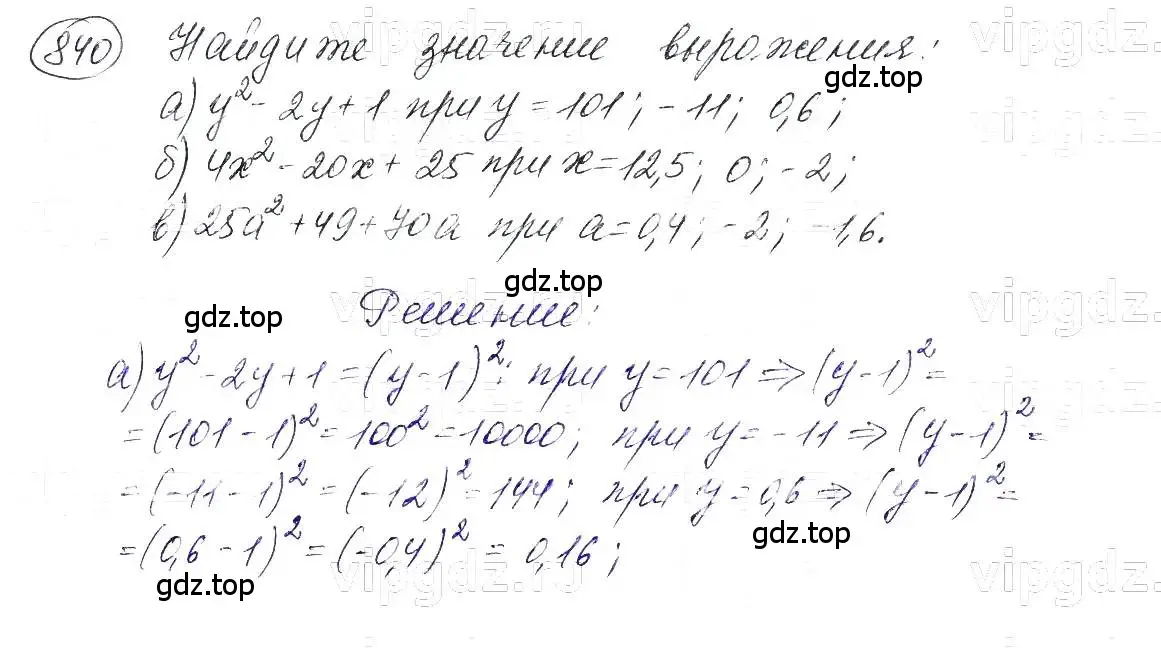 840 Найдите значение выражения:
gdz.top
а) y² - 2y + 1 при y = 101; -11; 0,6;
б) 4x² - 20x + 25 при x = 12,5; 0; -2;
в) 25a² + 49 + 70a при a = 0,4; -2; -1,6.
gdz.top
gdz.top
Решение:
а) y² - 2y + 1 = (y - 1)²: при y = 101 ⇒ (y - 1)² =
= (101 - 1)² = 100² = 10000; при y = -11 ⇒ (y - 1)² =
= (-11 - 1)² = (-12)² = 144; при y = 0,6 ⇒ (y - 1)² =
gdz.top
= (0,6 - 1)² = (-0,4)² = 0,16;
gdz.top
vipgdz.ru
vipgdz.
vipgdz.
vipgdz.ru
vipgdz.
vipgdz.
vipgdz.ru
vipgdz.